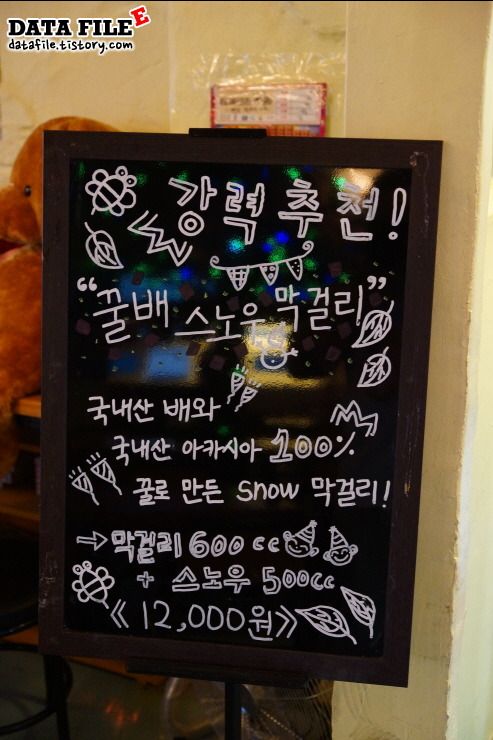 DATA FILE E
datafile.tistory.com
강력 추천!
"꿀배 스노우 막걸리"
국내산 배와
국내산 아카시아 100%
꿀로 만든 snow 막걸리!
→ 막걸리 600cc
+ 스노우 500cc
《 12,000원 》